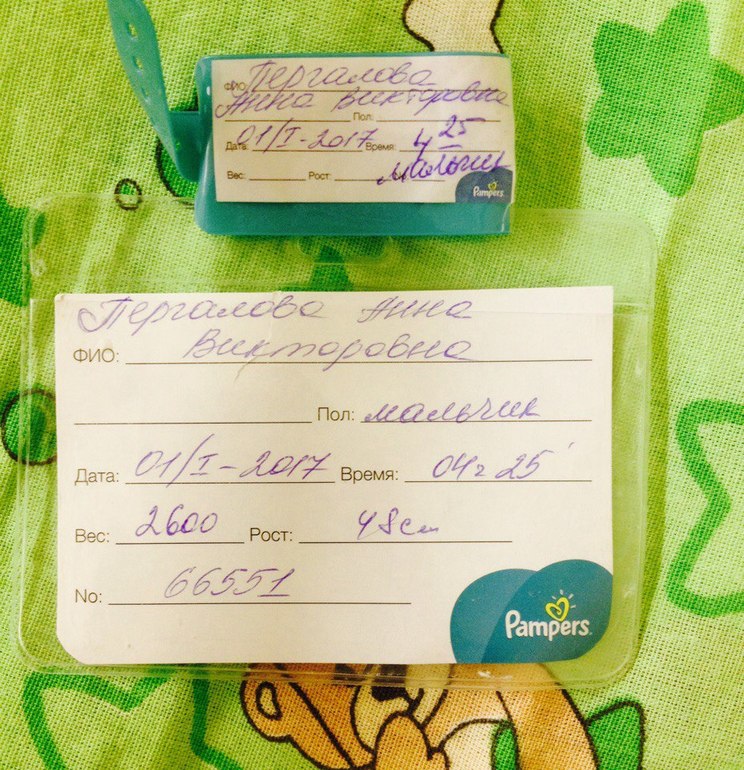 ФИО: Пергалова
Анна Викторовна
Пол:
Дата: 01/I-2017 Время: 4 25
Вес: Рост: мальчик
Pampers
Пергалова Анна
ФИО: Викторовна
Пол: мальчик
Дата: 01/I-2017 Время: 04ч 25'
Вес: 2600 Рост: 48см
No: 66551
Pampers